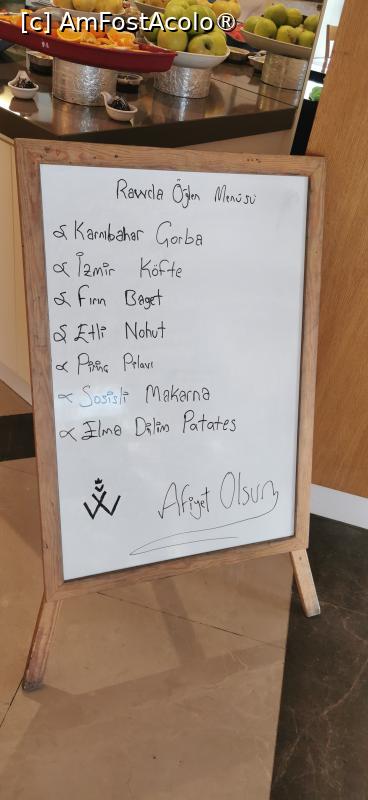 [c] AmFostAcolo®
Rawda Öğlen Menüsü
Karnıbahar Çorba
İzmir Köfte
Fırın Baget
Etli Nohut
Pirinç Pilavı
Sosisli Makarna
Elma Dilim Patates
Afiyet Olsun